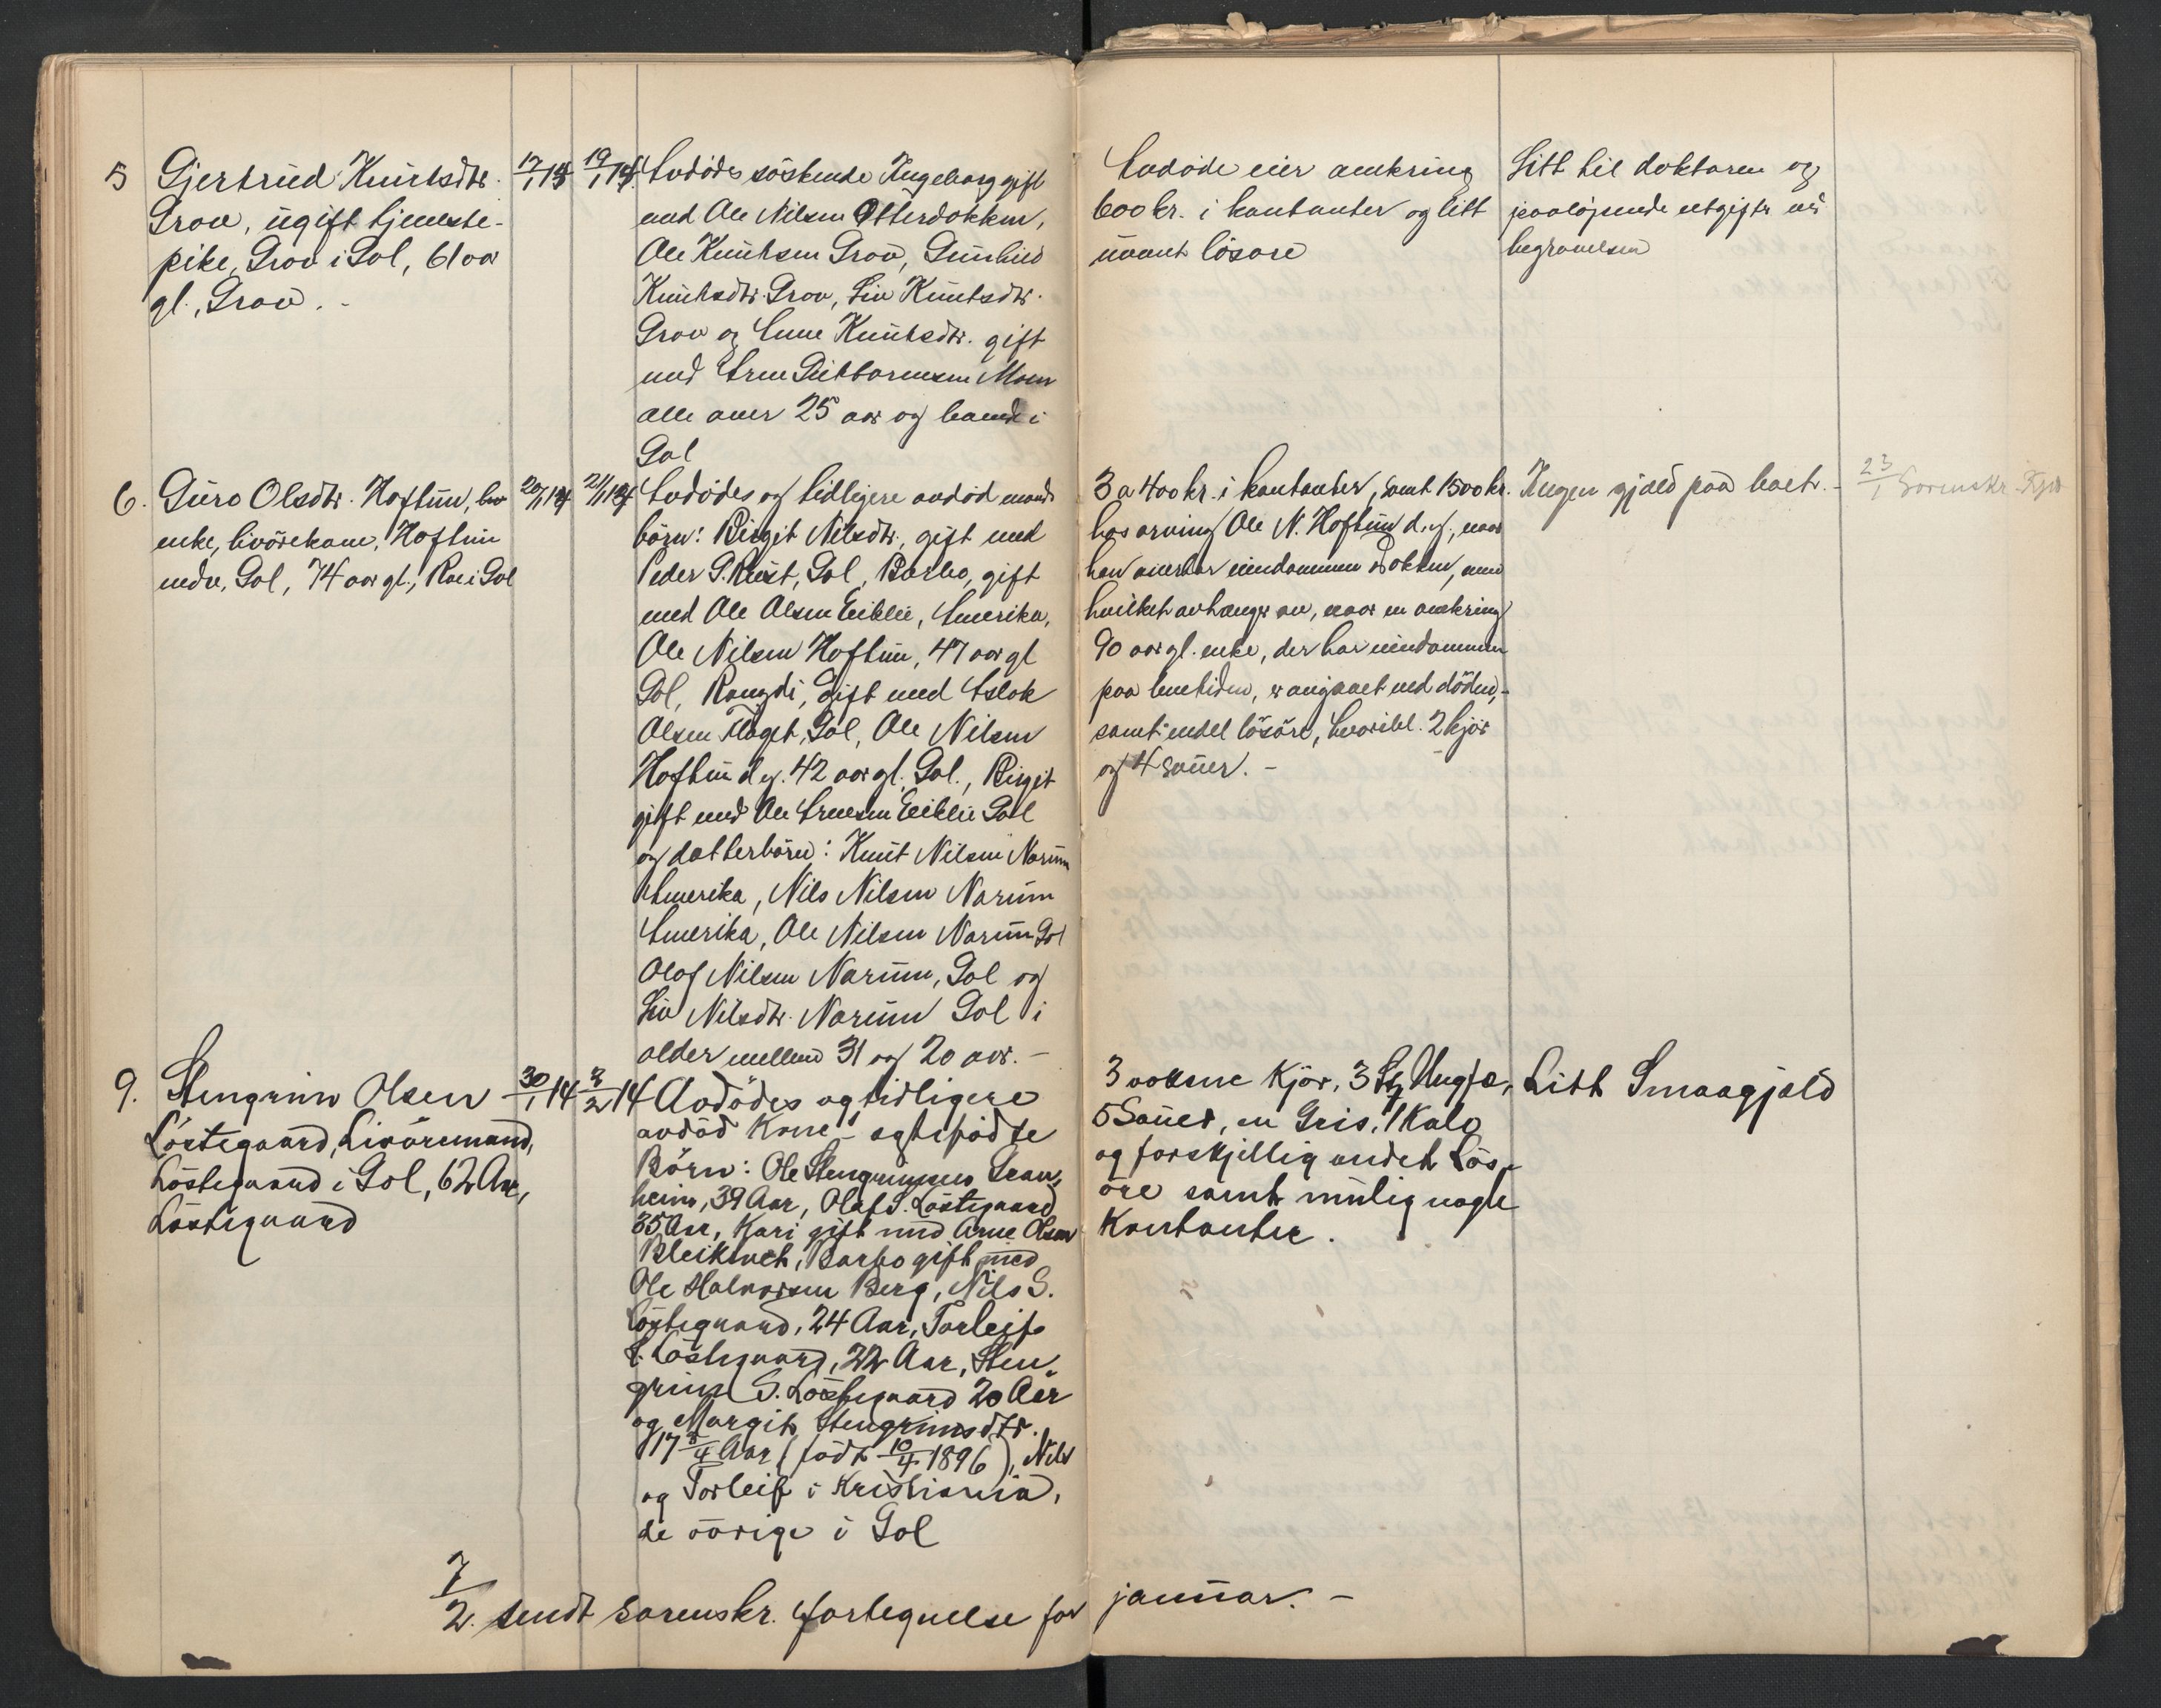 5 Gjertrud Knutsdtr.
Grov, ugift tjeneste-
pike, Grov i Gol, 61 aar
gl., Grov. -
17/1 14
19/1 14.
Avdødes søskende Ingeborg gift
med Ole Nilsen Otterdokken,
Ole Knutsen Grov, Gunhild
Knutsdtr. Grov, Liv Knutsdtr.
Grov og Anne Knutsdtr. gift
med Arne Guttormsen Moen
alle over 25 aar og boende i
Gol
Avdøde eier omkring
600 kr. i kontanter og litt
uvant løsøre
Litt til doktoren og
paaløpende utgifter ved
begravelsen
6. Guro Olsdtr. Hoftun,
enke, livørekone, Hoftun
nedre, Gol, 74 aar gl., Roe i Gol
20/1 14
21/1 14
Avdødes og tidligere avdød mands
børn: Birgit Nilsdtr., gift med
Peder G. Rust, Gol, Barbo, gift
med Ole Olsen Eiklie, Amerika,
Ole Nilsen Hoftun, 47 aar gl
Gol, Rangdi, gift med Aslak
Olsen Flaget, Gol, Ole Nilsen
Hoftun d.y. 42 aar gl. Gol., Birgit
gift med Ole Arnesen Eiklie Gol
og datterbørn: Knut Nilsen Narum
Amerika, Nils Nilsen Narum
Amerika, Ole Nilsen Narum Gol
Olaf Nilsen Narum, Gol og
Liv Nilsdtr. Narum Gol i
alder mellem 31 og 20 aar. -
3 a 400 kr. i kontanter, samt 1500 kr.
hos arving Ole N. Hoftun d.y., naar
han overtar eiendommen Dokken,
hvilket avhænger av, naar en omkring
90 aar gl. enke, der har eiendommen
paa levetiden, er avgaaet ved døden, -
samt endel løsøre, hvoribl. 2 kjør
og 4 sauer. -
Ingen gjæld paa boet. -
23/1 Sorenskr.
9. Stengrim Olsen
Løstegaard, Livøremand,
Løstegaard i Gol, 62 Aar,
Løstegaard
30/1 14
3/2 14
Avdødes og tidligere
avdød Kone - egtefødte
Børn: Ole Stengrimsen Gran-
heim, 39 Aar, Olaf S. Løstegaard
35 Aar, Kari gift med Arne Olsen
Bleiktvet, Barbo gift med
Ole Halvorsen Berg, Nils S.
Løstegaard, 24 Aar, Torleif
S. Løstegaard, 22 Aar, Sten-
grim S. Løstegaard 20 Aar
og Margit Stengrimsdtr.
17 3/4 Aar (født 10/4 1896), Nils
og Torleif i Kristiania,
de øvrige i Gol
3 voksne Kjør, 3 Stk Ungfæ,
5 Sauer, en Gris, 1 Kalv
og forskjellig andet Løs-
øre samt mulig nogle
Kontanter.
Litt Smaagjæld
7/2. sendt sorenskr. fortegnelse for januar. -